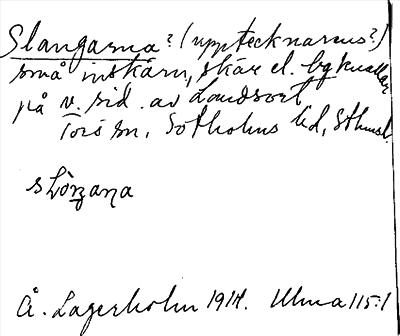 Slangarna? (upptecknarens?)
små inskärn, skär el. bykullar
på v. sid. av Landsort,
Torö sn, Sotholms hd, Sthmsl.
Å. Lagerholm 1914. Ulma 115:1